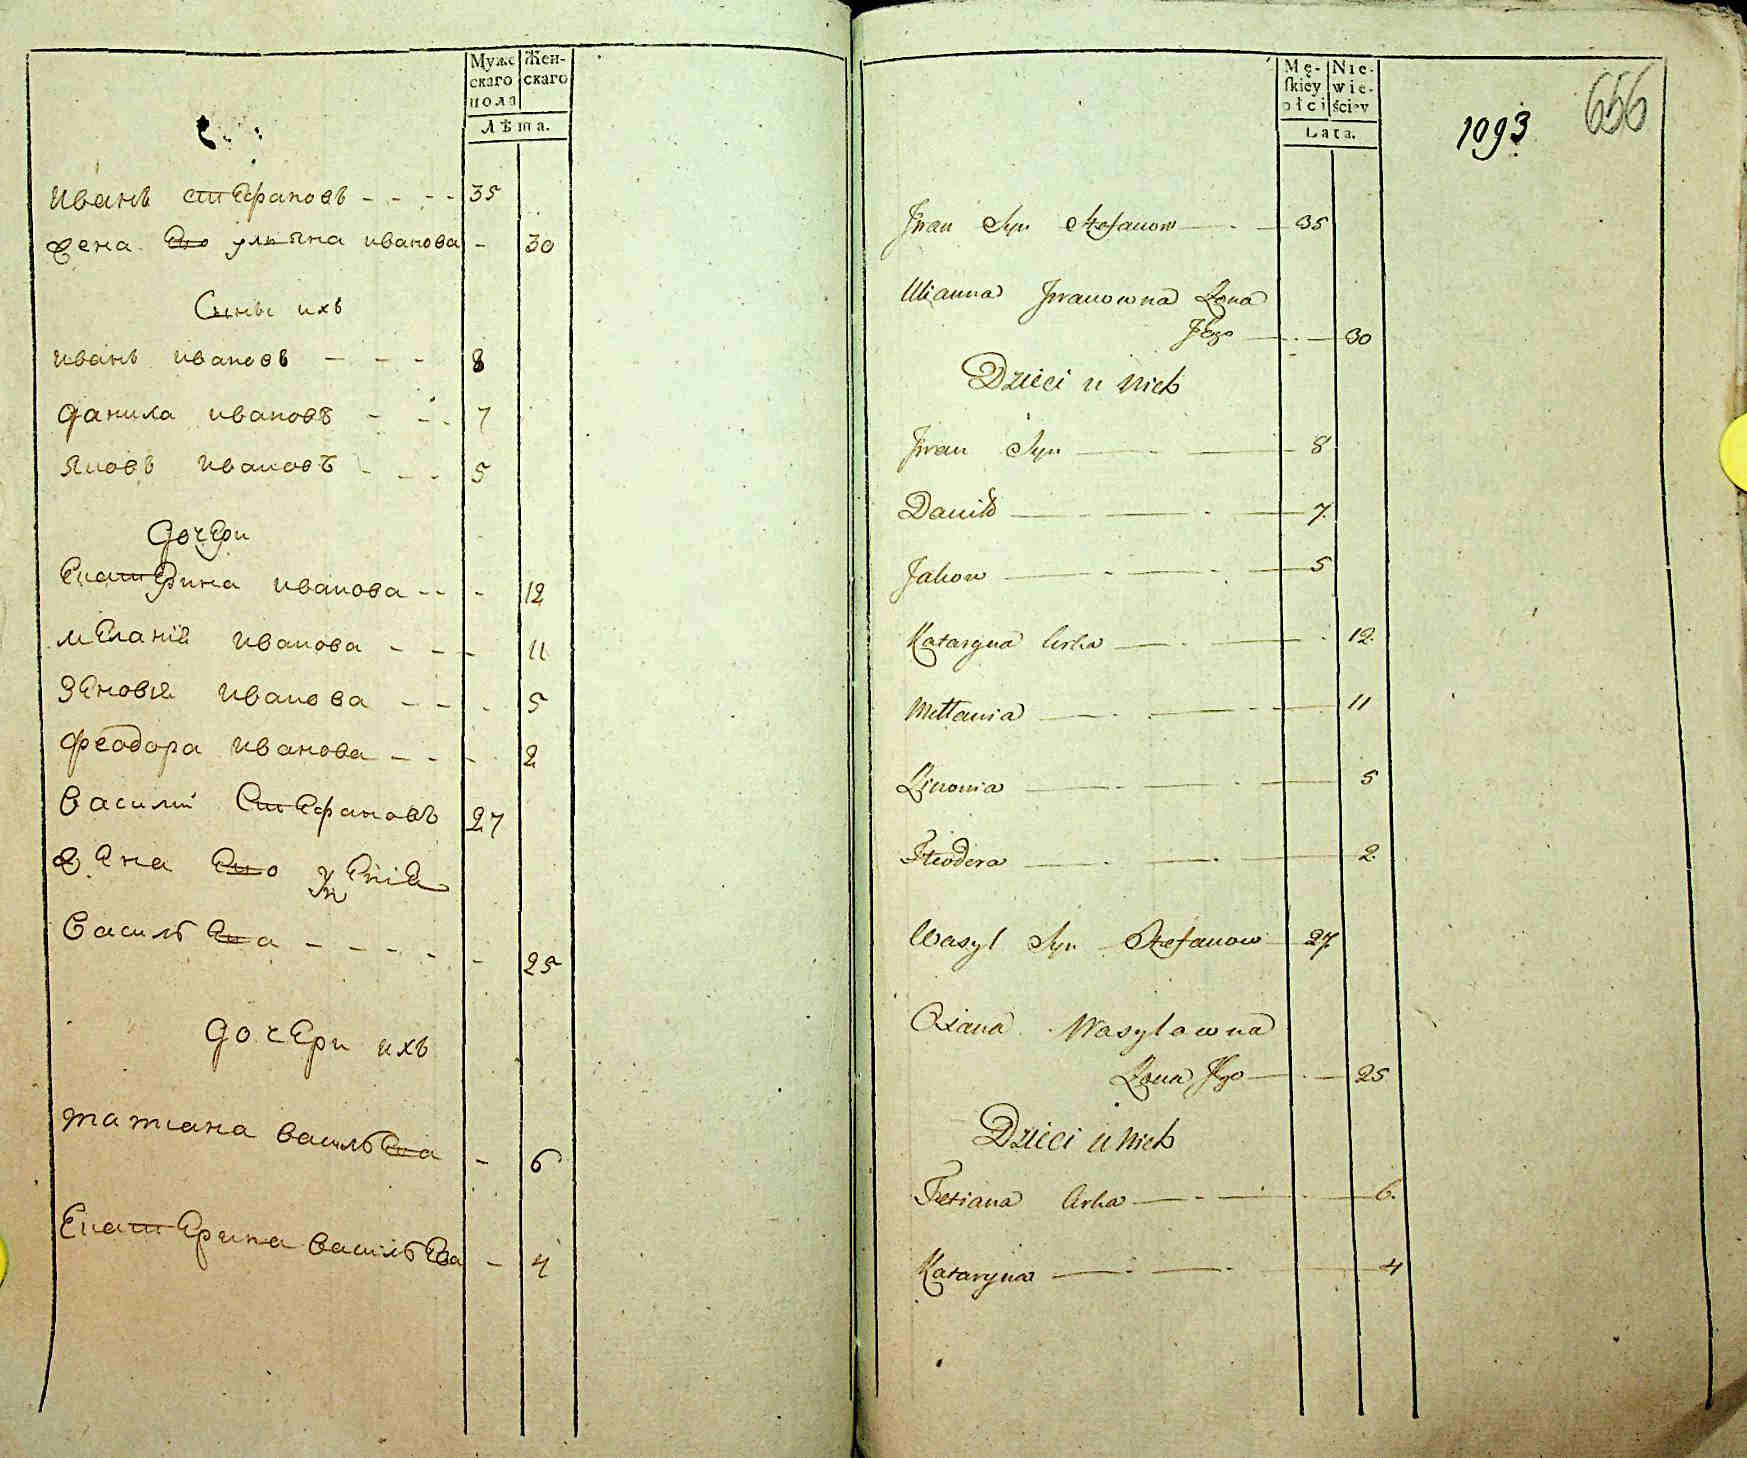 Муже
скаго
пола
Жен-
скаго
Лѣта.
Иванъ Стефановъ - - - - 35
жена Ево улияна иванова - 30
Сыны ихъ
иванъ ивановъ - - - 8
данила ивановъ - - - 7
яковъ ивановъ - - - 5
дочери
Екатерина иванова - - - 12
мЕланiя иванова - - - 11
Зеновiя иванова - - - 5
феодора иванова - - - 2
василий Стефановъ 27
жена Ево
Василъева - - - - - 25
дочери ихъ
татиана василъева - 6
Екатерина василъева - 4
Mę-
skiey
płci
Nie-
wie-
ściey
Lata.
1093
656
Jwan Syn Stefanow 35
Ulianna Jwanowna Zona
Jego 30
Dzieci u nich
Jwan Syn 8
Daniło 7
Jakow 5
Kataryna Curka 12.
Mełłania 11
Zinowia 5
Fteodora 2.
Wasyl Syn Stefanow 27
Oxana Wasylowna
Zona Jego 25
Dzieci u nich
Tetiana Curka 6.
Kataryna 4